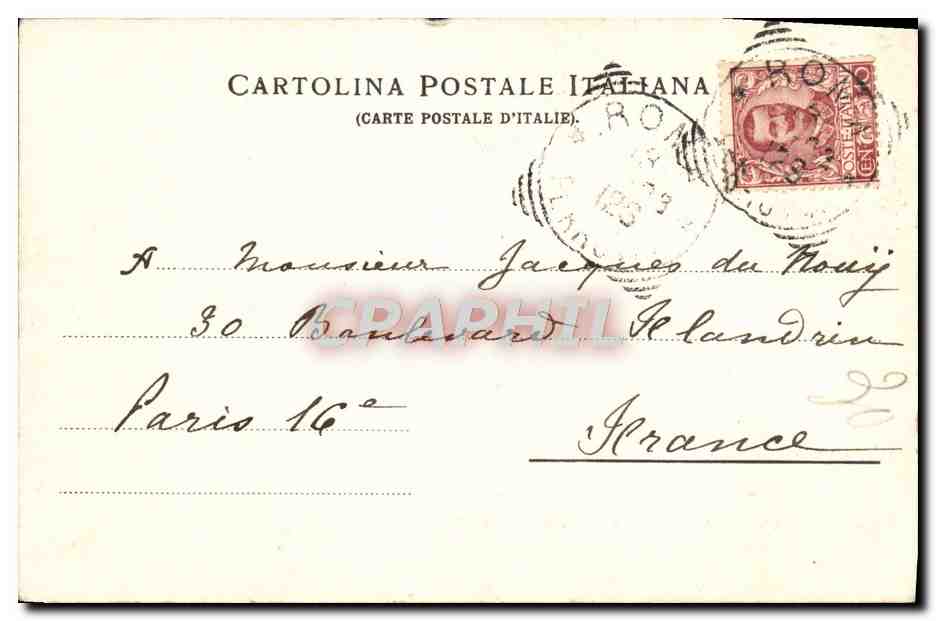 CARTOLINA POSTALE ITALIANA
(CARTE POSTALE D'ITALIE).
ROMA
ROMA
POSTE ITALIANE
A Monsieur Jacques du Nouÿ
30 Boulevard Flandrin
Paris 16e
France
20
CPAPHIL